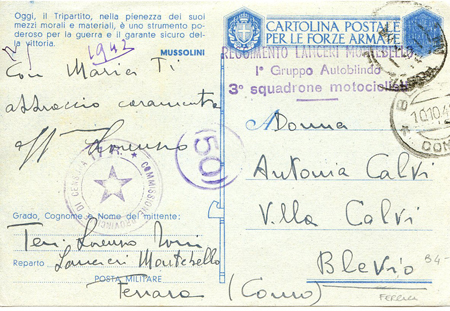 Oggi, il Tripartito, nella pienezza dei suoi
mezzi morali e materiali, è uno strumento po-
deroso per la guerra e il garante sicuro del-
la vittoria.
MUSSOLINI
1942
Con Maria Ti
abbraccio caramente
Lorenzo
COMMISSIONE
DI CENSURA
50
Grado, Cognome e Nome del mittente:
Ten. Lorenzo
Reparto Lancieri Montebello
POSTA MILITARE
Ferrara
CARTOLINA POSTALE
PER LE FORZE ARMATE
REGGIMENTO LANCIERI MONTEBELLO
I° Gruppo Autoblindo
3° squadrone motociclisti
10.10.4
COMO
Donna
Antonia Calvi
Villa Calvi
Blevio
84-
(Como)
FERRARA